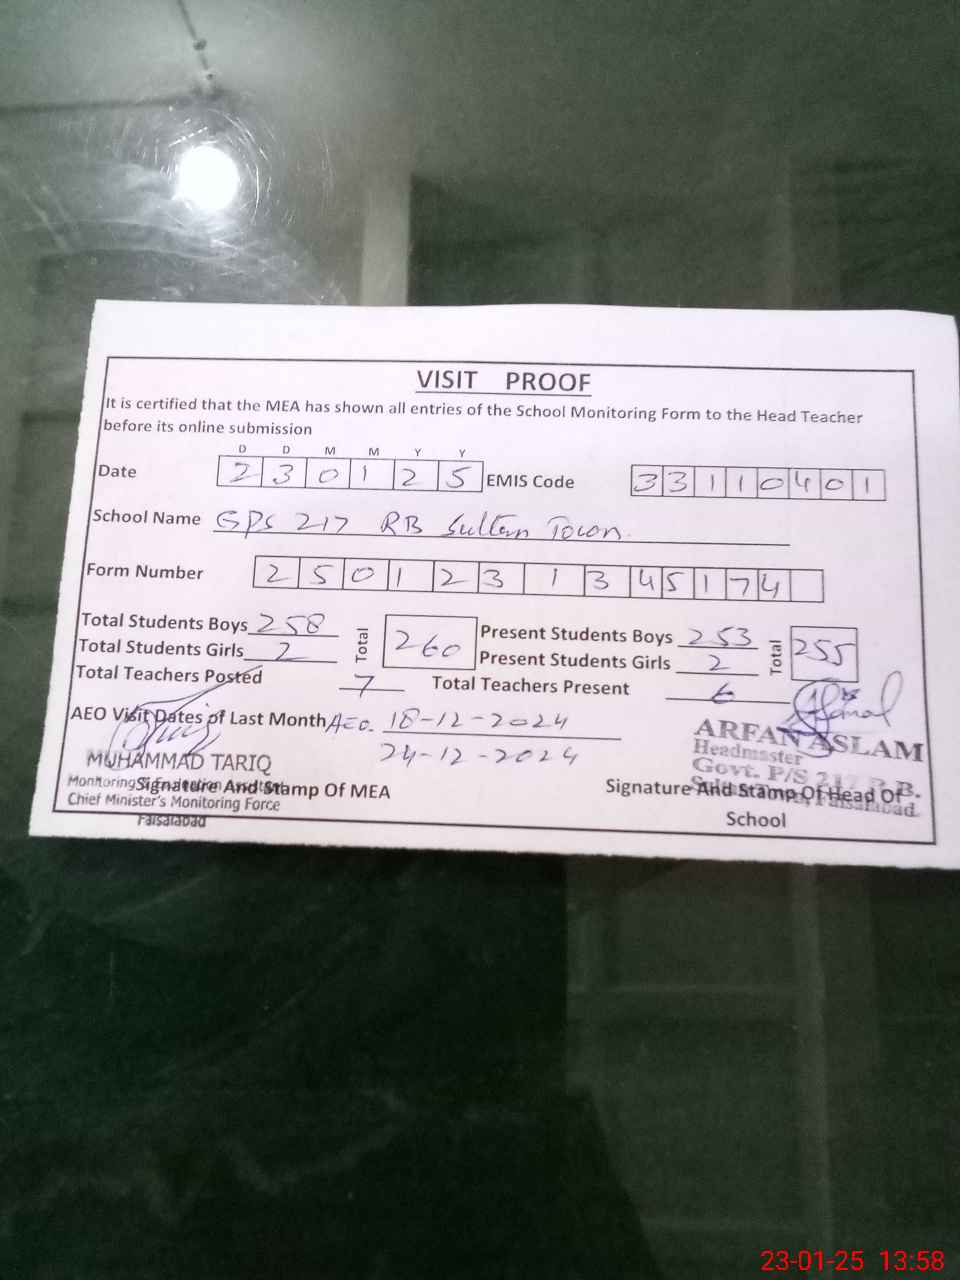 VISIT PROOF
It is certified that the MEA has shown all entries of the School Monitoring Form to the Head Teacher
before its online submission
D D M M Y Y
Date 2 3 0 1 2 5 EMIS Code 3 3 1 1 0 4 0 1
School Name GPS 217 RB Sultan Town.
Form Number 2 5 0 1 2 3 1 3 4 5 1 7 4
Total Students Boys 258 Total 260 Present Students Boys 253 Total 255
Total Students Girls 2 Present Students Girls 2
Total Teachers Posted 7 Total Teachers Present 6
AEO Visit Dates of Last Month AEO. 18-12-2024
24-12-2024
ARFAN ASLAM
Headmaster
Govt. P/S 217 R.B.
Faisalabad.
MUHAMMAD TARIQ
Monitoring
Signature And Stamp Of MEA
Signature And Stamp Of Head Of
School
Chief Minister's Monitoring Force
Faisalabad
23-01-25 13:58